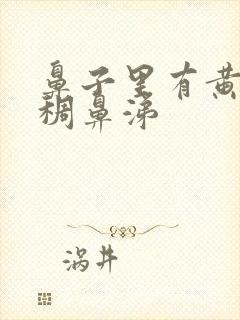 鼻子里有黄
稠鼻涕
涡井